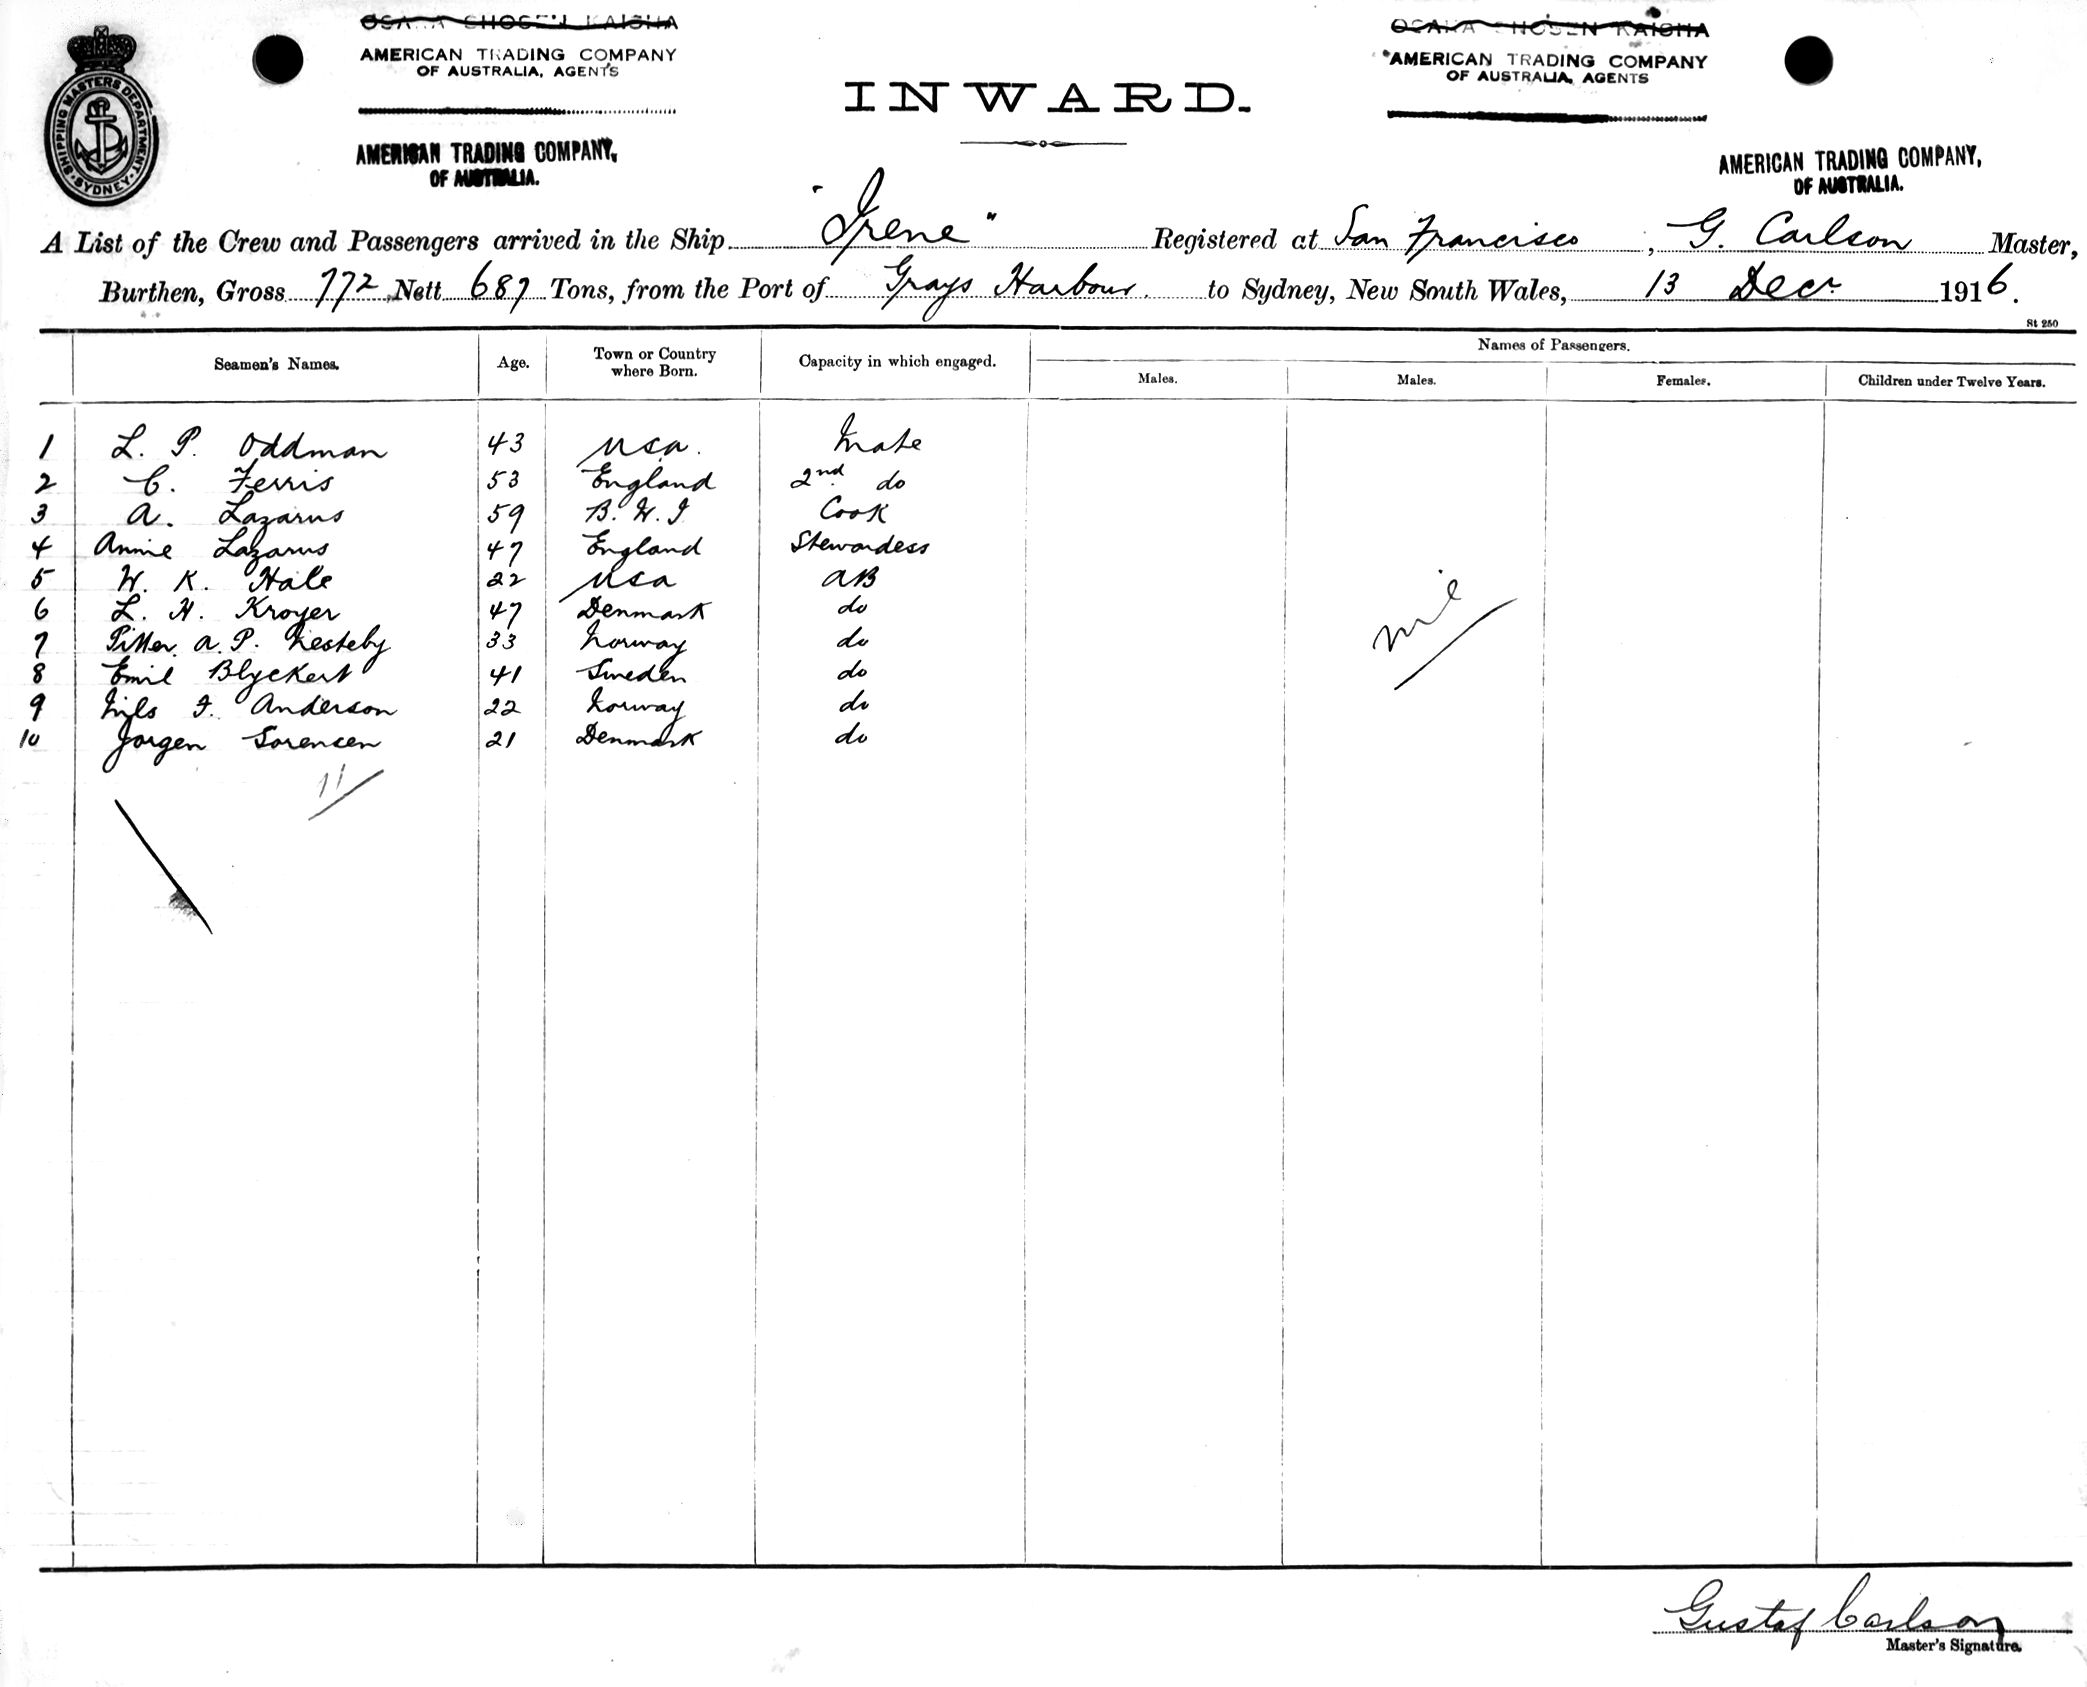 OSAKA SHOSEN KAISHA
AMERICAN TRADING COMPANY
OF AUSTRALIA, AGENTS
OSAKA SHOSEN KAISHA
AMERICAN TRADING COMPANY
OF AUSTRALIA, AGENTS
SHIPPING MASTERS DEPARTMENT. SYDNEY
INWARD.
AMERICAN TRADING COMPANY,
OF AUSTRALIA.
AMERICAN TRADING COMPANY,
OF AUSTRALIA.
A List of the Crew and Passengers arrived in the Ship "Irene" Registered at San Francisco, G. Carlson Master,
Burthen, Gross 772 Nett 687 Tons, from the Port of Grays Harbour. to Sydney, New South Wales, 13 Decr 1916.
St 250
Seamen's Names. Age. Town or Country where Born. Capacity in which engaged. Names of Passengers.
Males. Males. Females. Children under Twelve Years.
1 L. P. Oddman 43 USA. Mate
2 C. Ferris 53 England 2nd do
3 A. Lazarus 59 B. W. I Cook
4 Annie Lazarus 47 England Stewardess
5 W. K. Hale 22 USA AB
6 L. H. Kroyer 47 Denmark do
7 A. P. Nesteby 33 Norway do
8 Emil Blyckert 41 Sweden do
9 Nils F. Anderson 22 Norway do
10 Jorgen Sorensen 21 Denmark do
nil
11
Gustaf Carlson
Master's Signature.